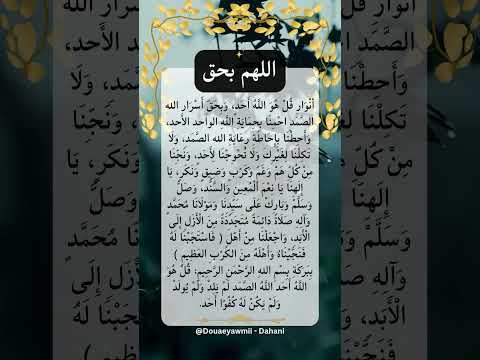 اللهم بحق
أَنْوَارِ قُلْ هُوَ اللَّهُ أَحَد، وَبِحَقِّ أَسْرَارِ الله
الصَّمَد احْمِنَا بِحِمَايَةِ اللَّهِ الوَاحِد الأَحد،
وَأَحِطْنَا بِإِحَاطَةِ رِعَايَةِ الله الصَّمَد، وَلَا
تَكِلْنَا لِغَيْرِكَ وَلَا تُحْوِجْنَا لِأَحَد، وَنَجِّنَا
مِنْ كُلِّ هَمٍّ وَغَمٍّ وَكَرْبٍ وَضِيقٍ وَنَكَرٍ، يَا
إِلَهِنَا يَا نِعْمَ الْمُعِينِ وَالسَّنَد، وَصَلِّ
وَسَلِّمْ وَبَارِكْ عَلَى سَيِّدِنَا وَمَوْلَانَا مُحَمَّد
وَآلِهِ صَلَاةً دَائِمَةً مُتَجَدِّدَةً مِنَ الْأَزَلِ إِلَى
الْأَبَد، وَاجْعَلْنَا مِنْ أَهْلِ ( فَاسْتَجَبْنَا لَهُ
فَنَجَّيْنَاهُ وَأَهْلَهُ مِنَ الكَرْبِ العَظِيمِ )
بِبَرَكَةِ بِسْمِ اللهِ الرَّحْمَنِ الرَّحِيمِ، قُلْ هُوَ
اللَّهُ أَحَد اللَّهُ الصَّمَد لَمْ يَلِدْ وَلَمْ يُولَدْ
وَلَمْ يَكُنْ لَهُ كُفُوًا أَحَد.
@Douaeyawmii - Dahani